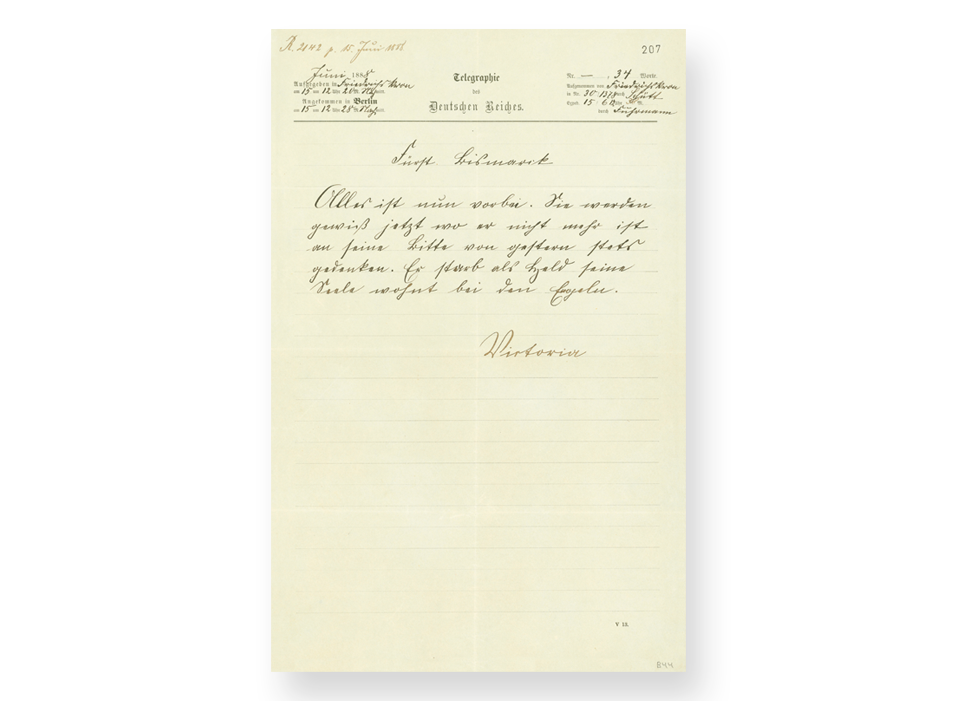 A. 2142 p. 15. Juni 1888
207
Juni 1888
Telegraphie
des
Deutschen Reiches.
Aufgegeben in Friedrichskorn
am 15 um 12 Uhr 20 Min.
Angekommen in Berlin
am 15 um 12 Uhr 28 Min.
Nr. — . 34 Worte.
Aufgenommen von Friedrichskorn
in Nr. 30 durch Schütt
durch Fuhrmann
Fürst Bismarck
Alles ist nun vorbei. Sie werden
gewiß jetzt wo er nicht mehr ist
an seine Bitte von gestern stets
gedenken. Er starb als Held seine
Seele wohnt bei den Engeln.
Victoria
V 13.
844